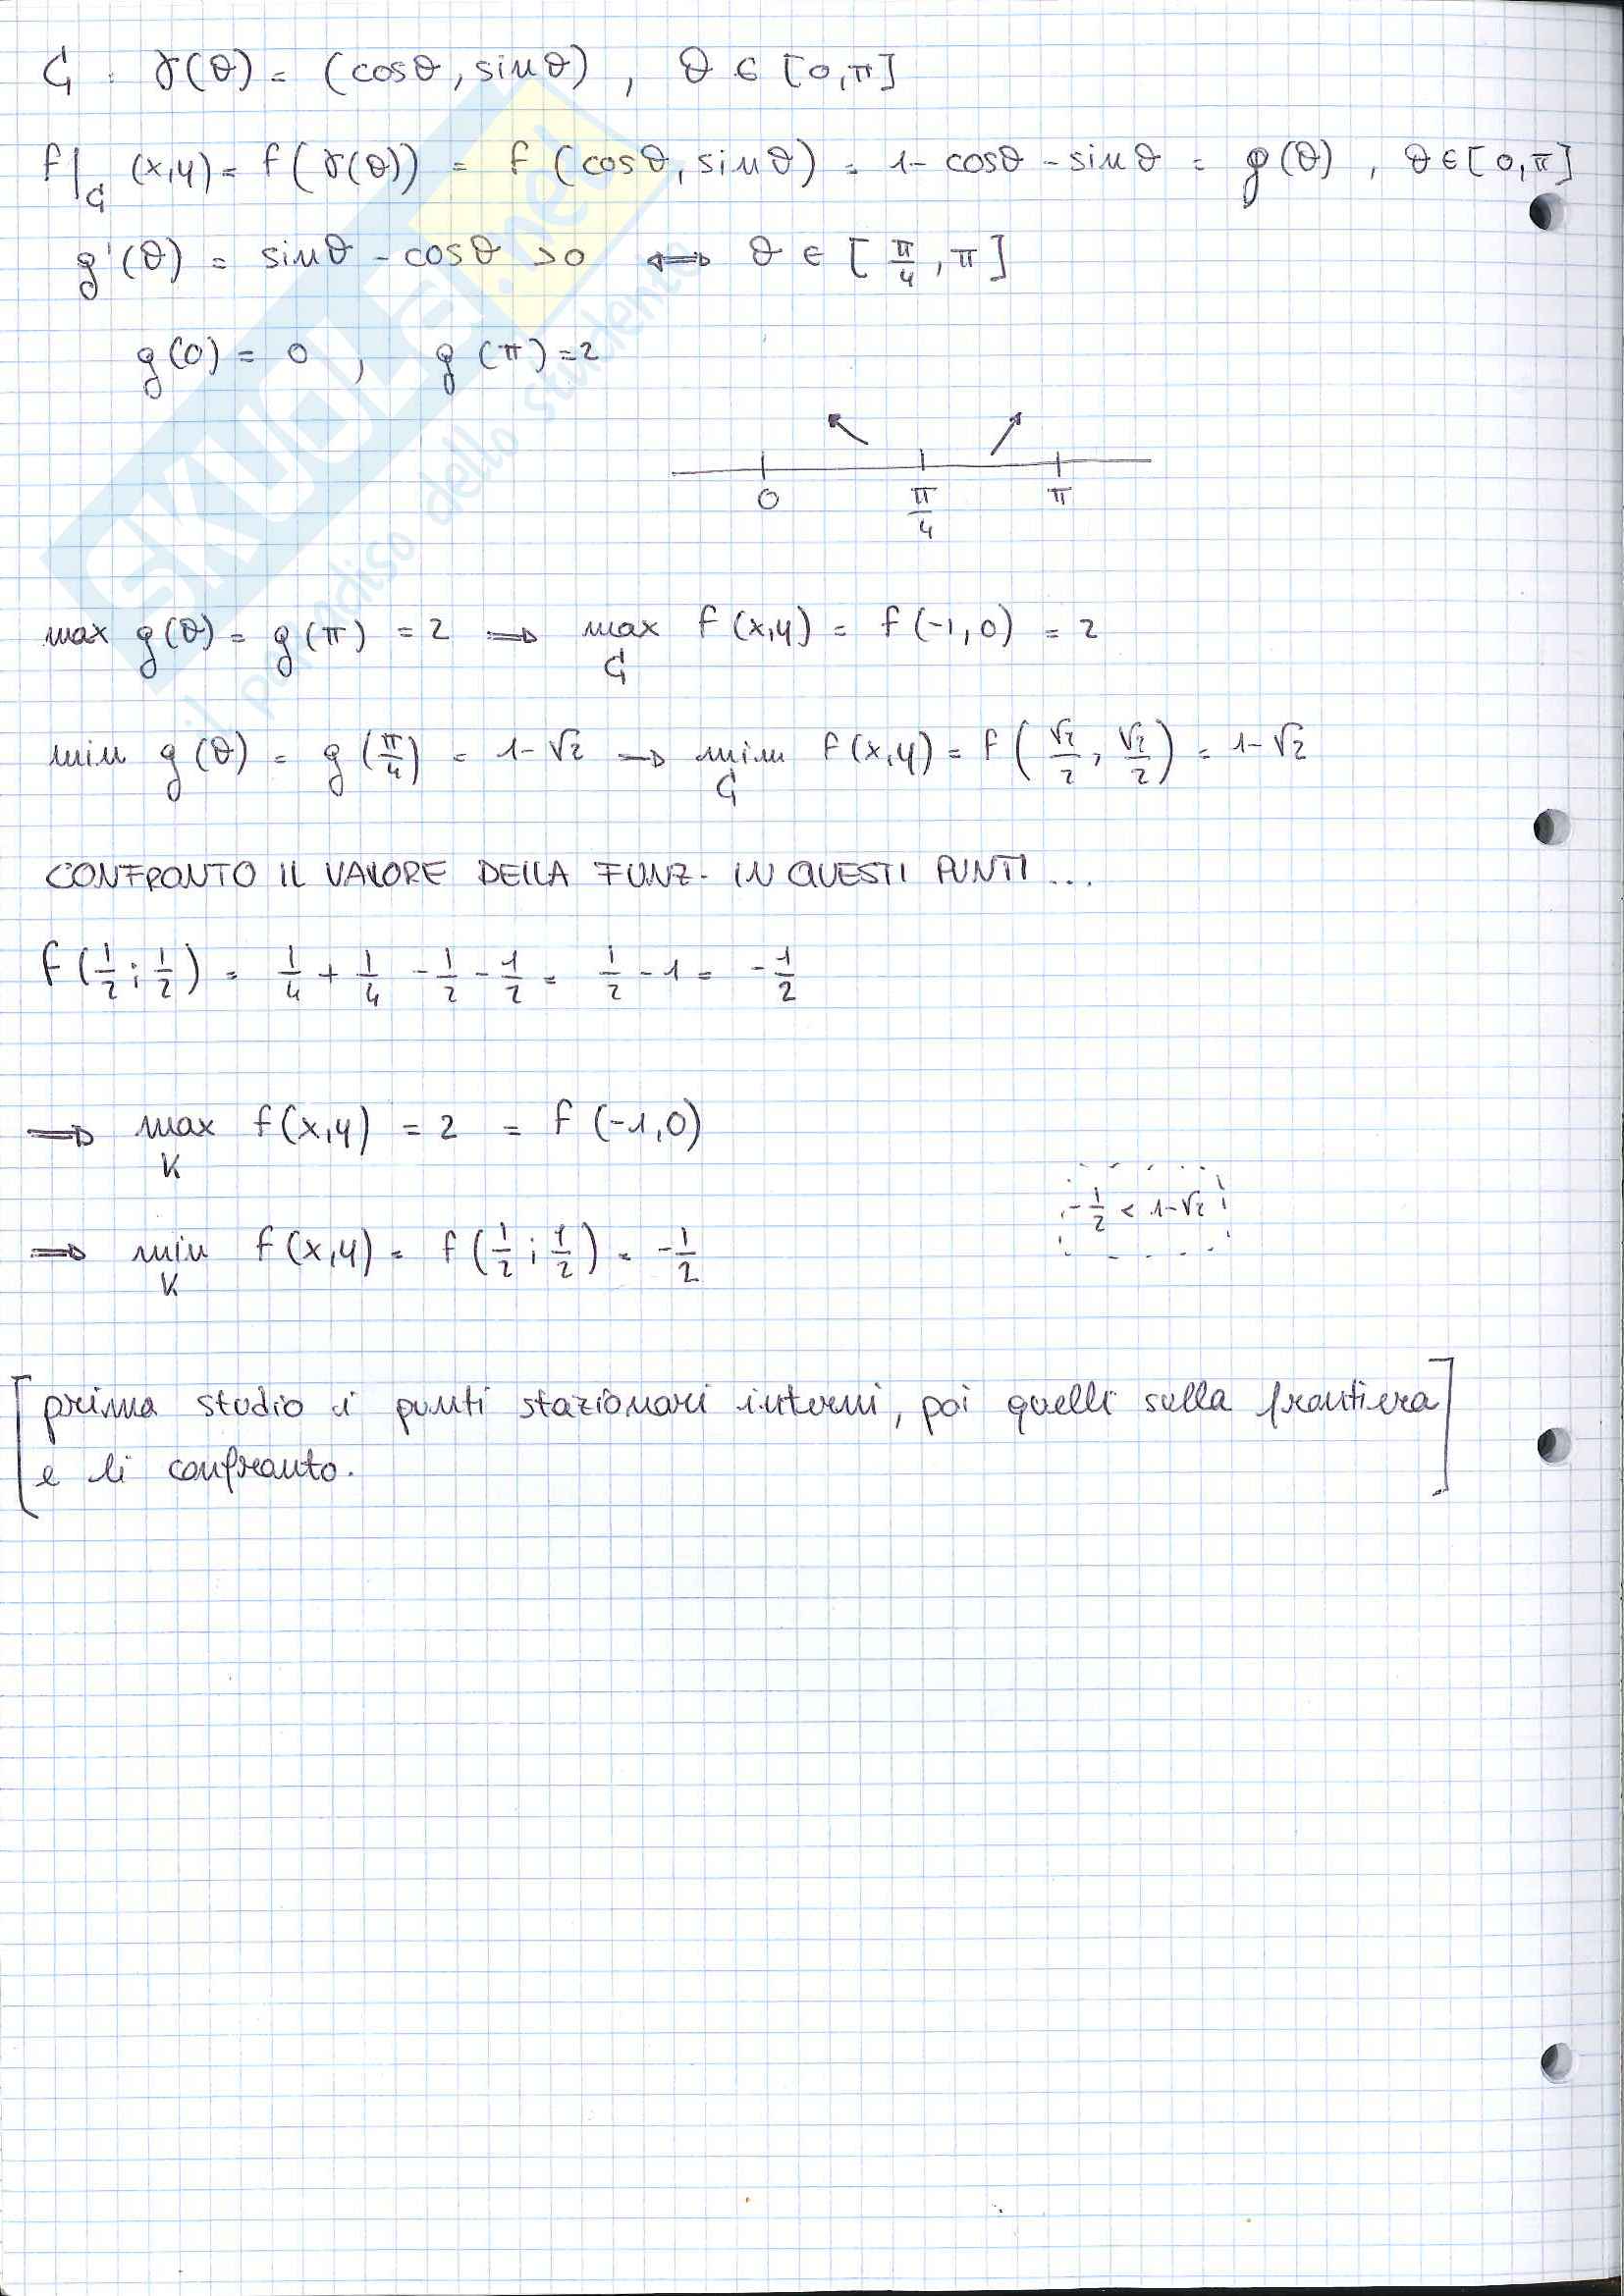 C₁ : γ(θ) = (cosθ, sinθ) , θ ∈ [0,π]
f|C₁ (x,y) = f(γ(θ)) = f(cosθ, sinθ) = 1 - cosθ - sinθ = g(θ) , θ ∈ [0,π]
g'(θ) = sinθ - cosθ >0 ⟺ θ ∈ [π/4, π]
g(0) = 0 , g(π) = 2
0 π/4 π
max g(θ) = g(π) = 2 ⟹ max C₁ f(x,y) = f(-1,0) = 2
min g(θ) = g(π/4) = 1-√2 ⟹ min C₁ f(x,y) = f(√2/2, √2/2) = 1-√2
CONFRONTO IL VALORE DELLA FUNZ. IN QUESTI PUNTI...
f(1/2 ; 1/2) = 1/4 + 1/4 - 1/2 - 1/2 = 1/2 - 1 = -1/2
⟹ max K f(x,y) = 2 = f(-1,0)
-1/2 < 1-√2
⟹ min K f(x,y) = f(1/2 ; 1/2) = -1/2
[prima studio i punti stazionari interni, poi quelli sulla frontiera
e li confronto.]
SKUOLA.net
il paradiso dello studente